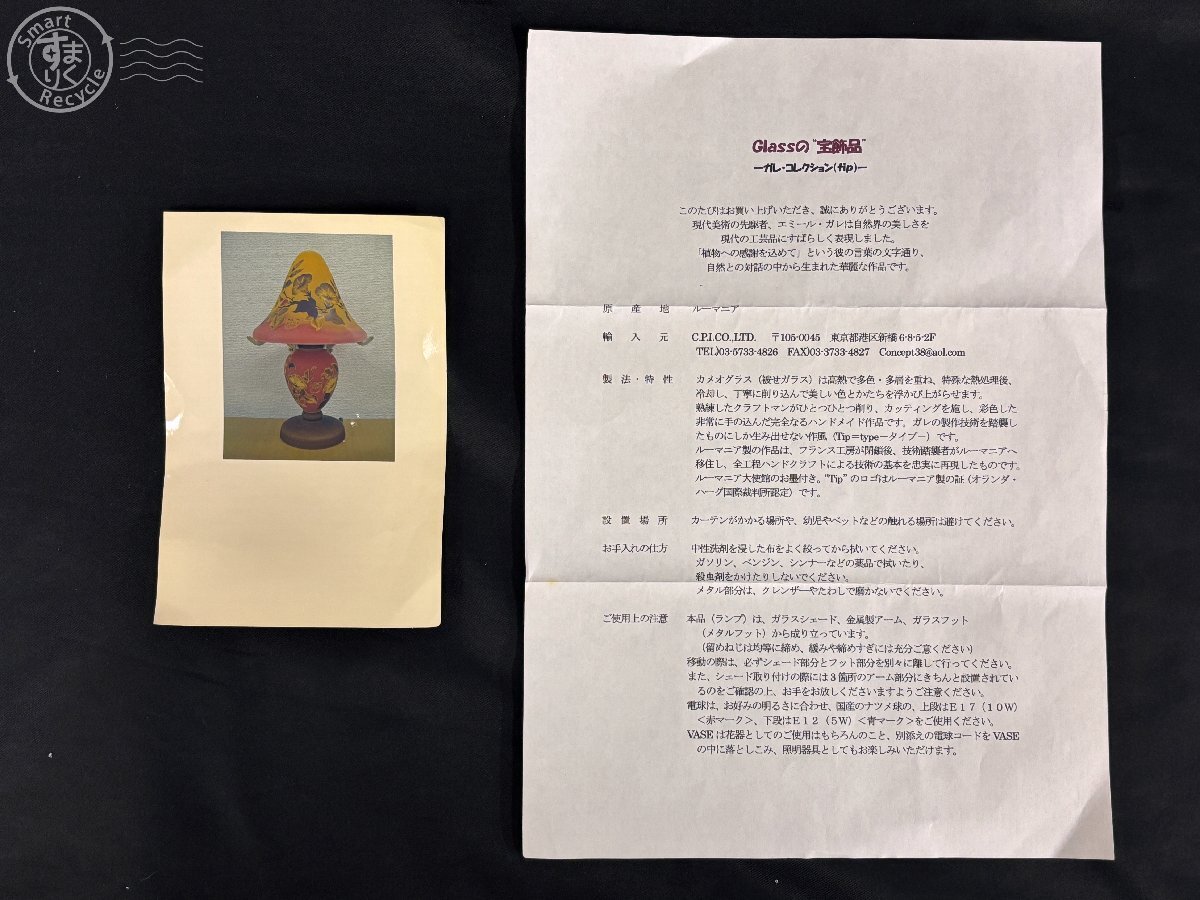 Smart
すまりく
Recycle
Glassの"宝飾品"
―ガレ・コレクション(ガip)―
このたびはお買い上げいただき、誠にありがとうございます。
現代美術の先駆者、エミール・ガレは自然界の美しさを
現代の工芸品にすばらしく表現しました。
「植物への感謝を込めて」という彼の言葉の文字通り、
自然との対話の中から生まれた華麗な作品です。
原産地 ルーマニア
輸入元 C.P.I.CO.,LTD. 〒105-0045 東京都港区新橋6-8-5-2F
TEL)03-5733-4826 FAX)03-3733-4827 Concept38@aol.com
製法・特性 カメオグラス（被せガラス）は高熱で多色・多層を重ね、特殊な熱処理後、
冷却し、丁寧に削り込んで美しい色とかたちを浮かび上がらせます。
熟練したクラフトマンがひとつひとつ削り、カッティングを施し、彩色した
非常に手の込んだ完全なるハンドメイド作品です。ガレの製作技術を踏襲し
たものにしか生み出せない作風（Tip＝typeータイプー）です。
ルーマニア製の作品は、フランス工房が閉鎖後、技術踏襲者がルーマニアへ
移住し、全工程ハンドクラフトによる技術の基本を忠実に再現したものです。
ルーマニア大使館のお墨付き。"Tip"のロゴはルーマニア製の証（オランダ・
ハーグ国際裁判所認定）です。
設置場所 カーテンがかかる場所や、幼児やペットなどの触れる場所は避けてください。
お手入れの仕方 中性洗剤を浸した布をよく絞ってから拭いてください。
ガソリン、ベンジン、シンナーなどの薬品で拭いたり、
殺虫剤をかけたりしないでください。
メタル部分は、クレンザーやたわしで磨かないでください。
ご使用上の注意 本品（ランプ）は、ガラスシェード、金属製アーム、ガラスフット
（メタルフット）から成り立っています。
（留めねじは均等に締め、緩みや締めすぎには充分ご意ください）
移動の際は、必ずシェード部分とフット部分を別々に離して行ってください。
また、シェード取り付けの際には３箇所のアーム部分にきちんと設置されてい
るのをご確認の上、お手をお放しくださいますようご注意ください。
電球は、お好みの明るさに合わせ、国産のナツメ球の、上段はＥ１７（１０Ｗ）
＜赤マーク＞、下段はＥ１２（５Ｗ）＜青マーク＞をご使用ください。
VASEは花器としてのご使用はもちろんのこと、別添えの電球コードをVASE
の中に落としこみ、照明器具としてもお楽しみいただけます。